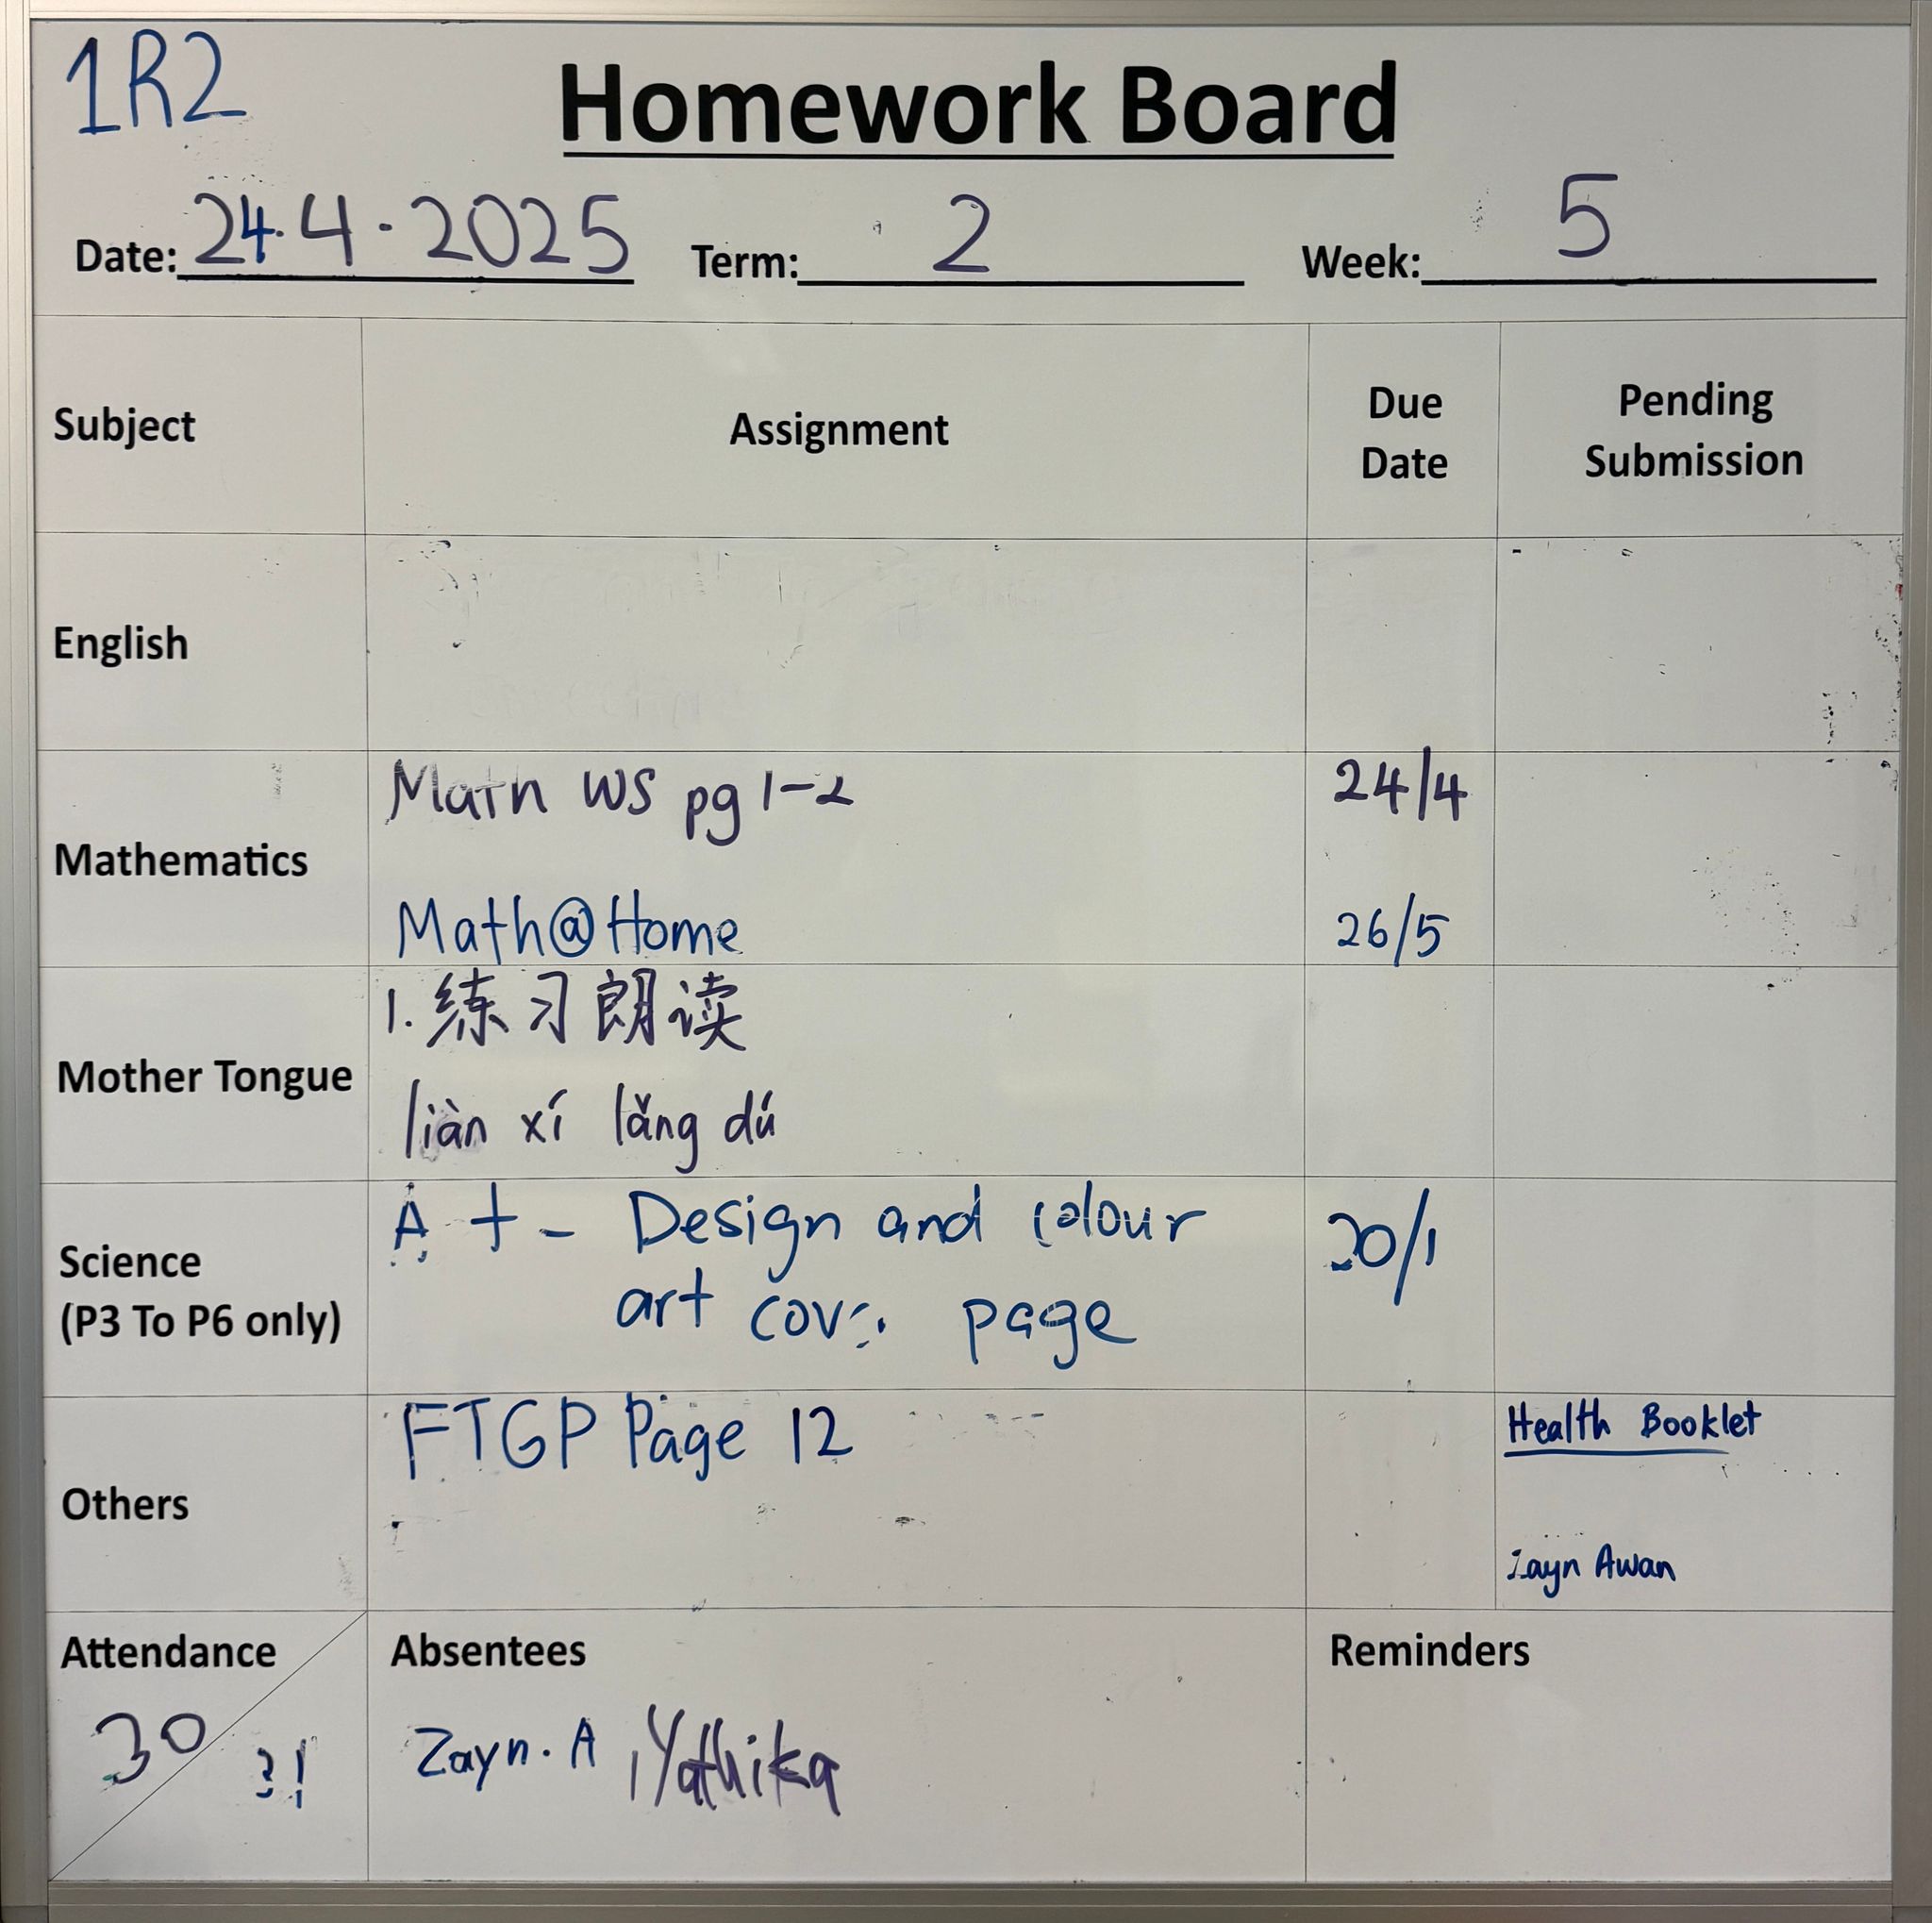 1R2
Homework Board
Date: 24.4.2025 Term: 2 Week: 5
Subject Assignment Due Date Pending Submission
English
Mathematics
Math WS pg 1-2 24/4
Math@Home 26/5
Mother Tongue
1. 练习朗读
liàn xí lǎng dú
Science
(P3 To P6 only)
A t - Design and colour
art page
FTGP Page 12
Others
Health Booklet
Zayn Awan
Attendance Absentees Reminders
30 31
Zayn. A, Yathika